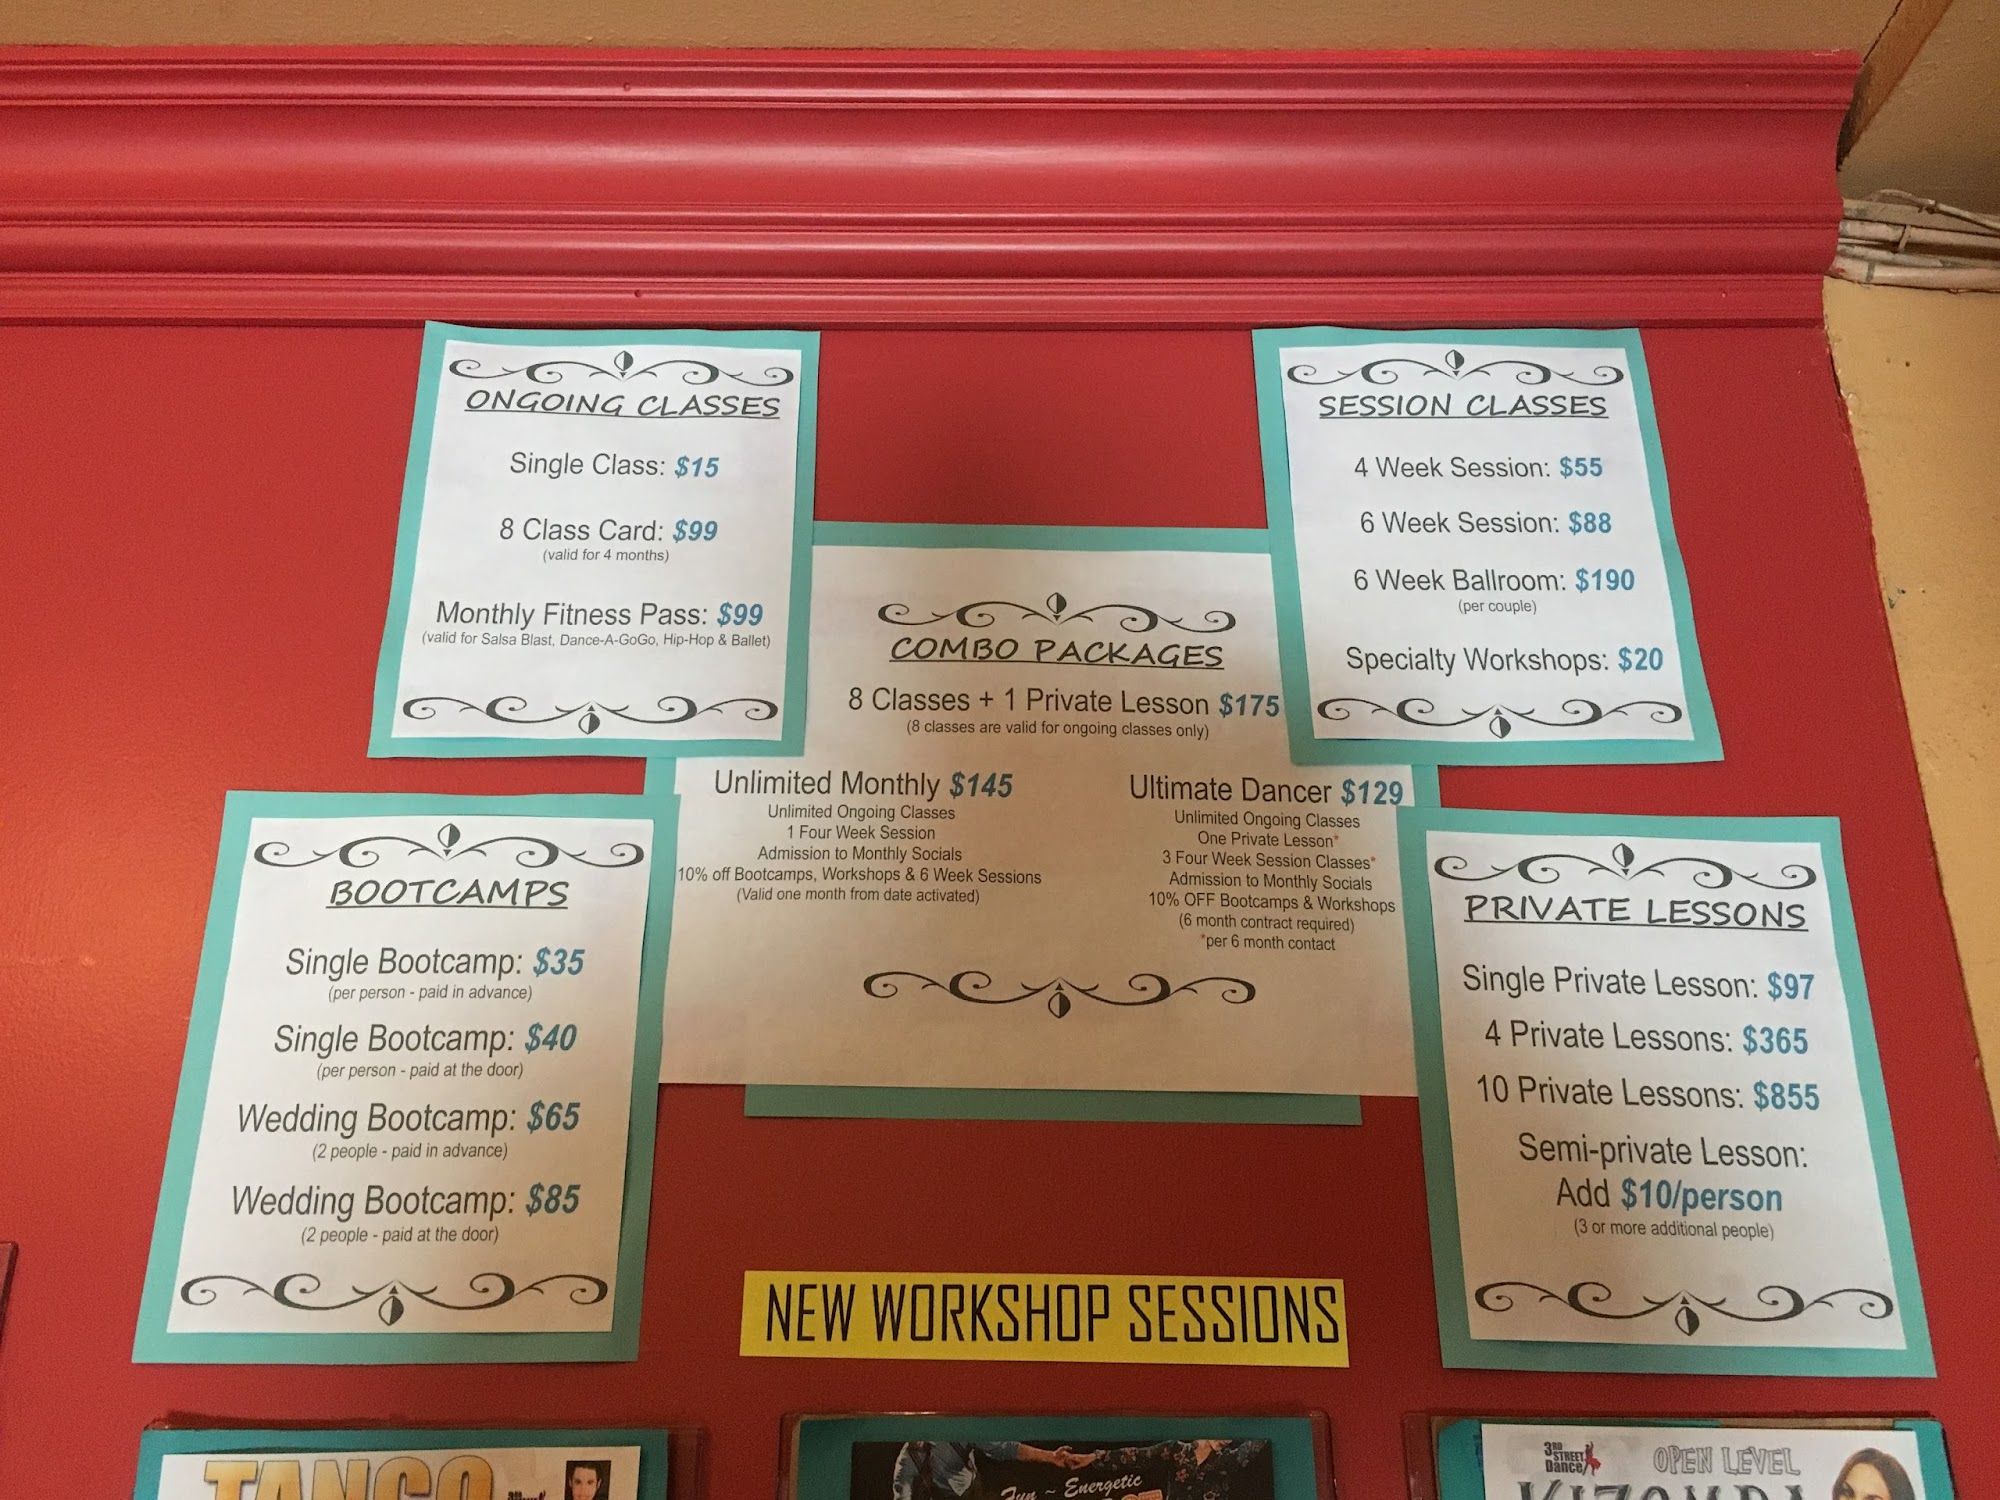 ONGOING CLASSES
Single Class: $15
8 Class Card: $99
(valid for 4 months)
Monthly Fitness Pass: $99
(valid for Salsa Blast, Dance-A-GoGo, Hip-Hop & Ballet)
SESSION CLASSES
4 Week Session: $55
6 Week Session: $88
6 Week Ballroom: $190
(per couple)
Specialty Workshops: $20
COMBO PACKAGES
8 Classes + 1 Private Lesson $175
(8 classes are valid for ongoing classes only)
Unlimited Monthly $145
Unlimited Ongoing Classes
1 Four Week Session
Admission to Monthly Socials
10% off Bootcamps, Workshops & 6 Week Sessions
(Valid one month from date activated)
Ultimate Dancer $129
Unlimited Ongoing Classes
One Private Lesson*
3 Four Week Session Classes*
Admission to Monthly Socials
10% OFF Bootcamps & Workshops
(6 month contract required)
*per 6 month contact
BOOTCAMPS
Single Bootcamp: $35
(per person - paid in advance)
Single Bootcamp: $40
(per person - paid at the door)
Wedding Bootcamp: $65
(2 people - paid in advance)
Wedding Bootcamp: $85
(2 people - paid at the door)
PRIVATE LESSONS
Single Private Lesson: $97
4 Private Lessons: $365
10 Private Lessons: $855
Semi-private Lesson:
Add $10/person
(3 or more additional people)
NEW WORKSHOP SESSIONS
TANGO
Fun ~ Energetic
3RD
STREET
Dance
OPEN LEVEL
KIZOMBA